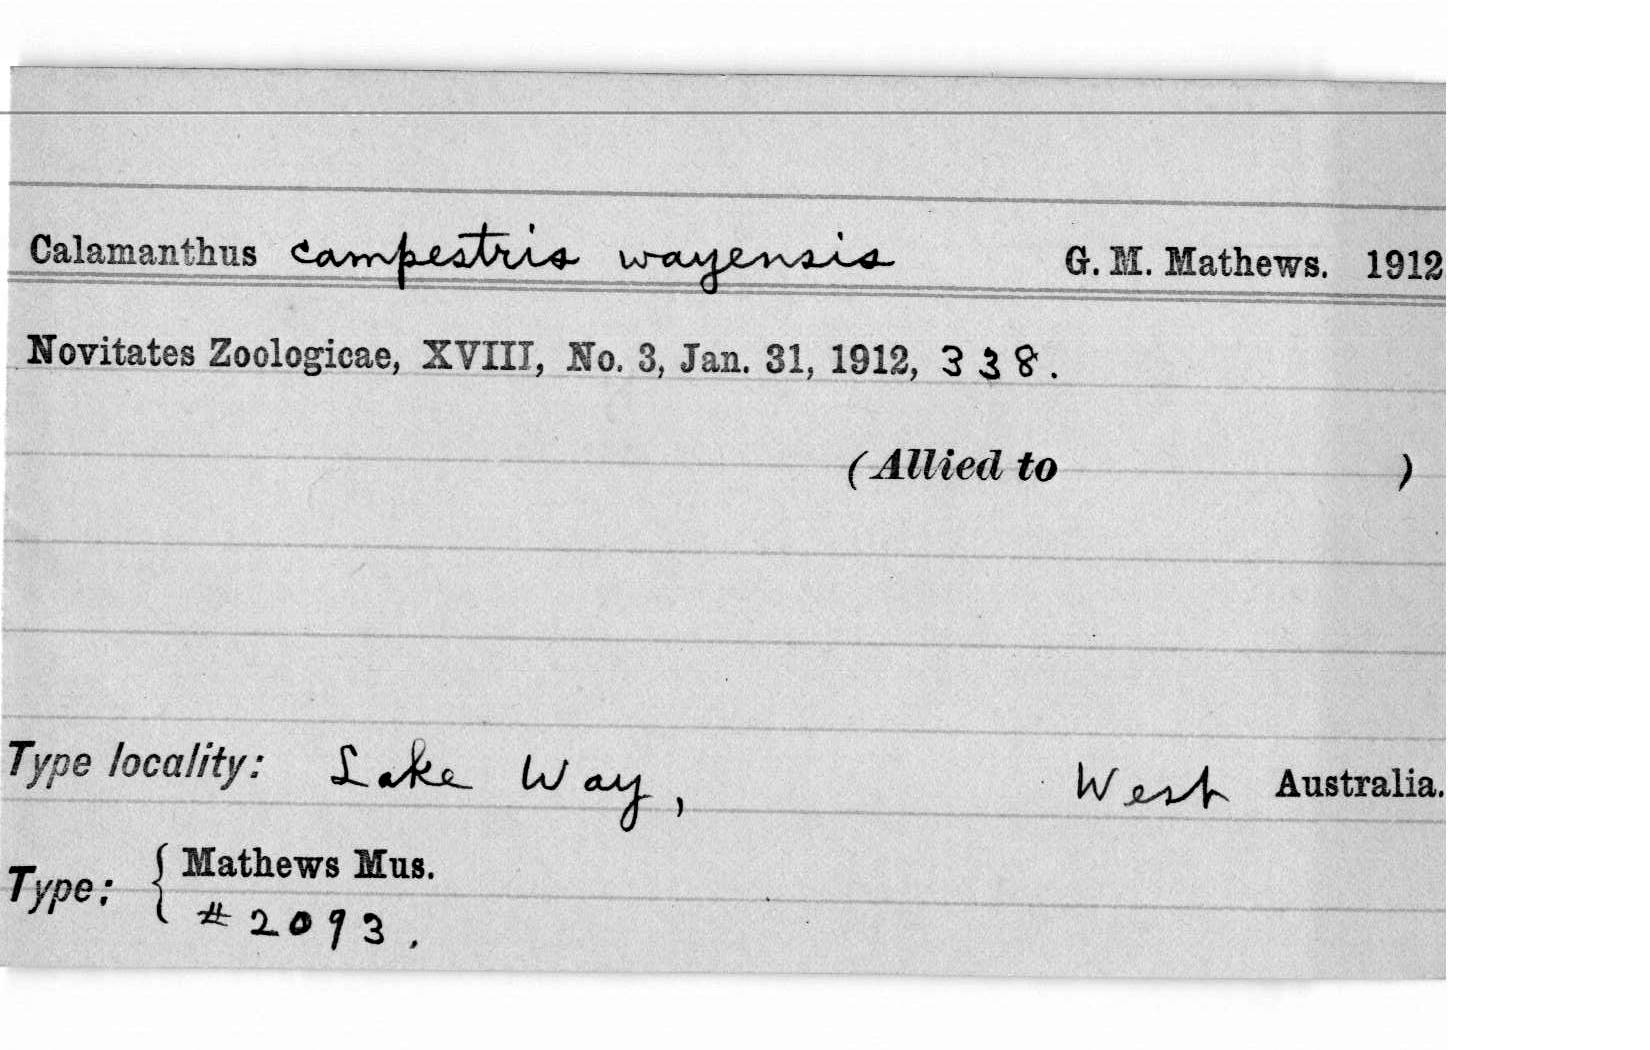 Calamanthus campestris wayensis G. M. Mathews. 1912
Novitates Zoologicae, XVIII, No. 3, Jan. 31, 1912, 338.
(Allied to )
Type locality: Lake Way, West Australia.
Type: { Mathews Mus.
#2093.